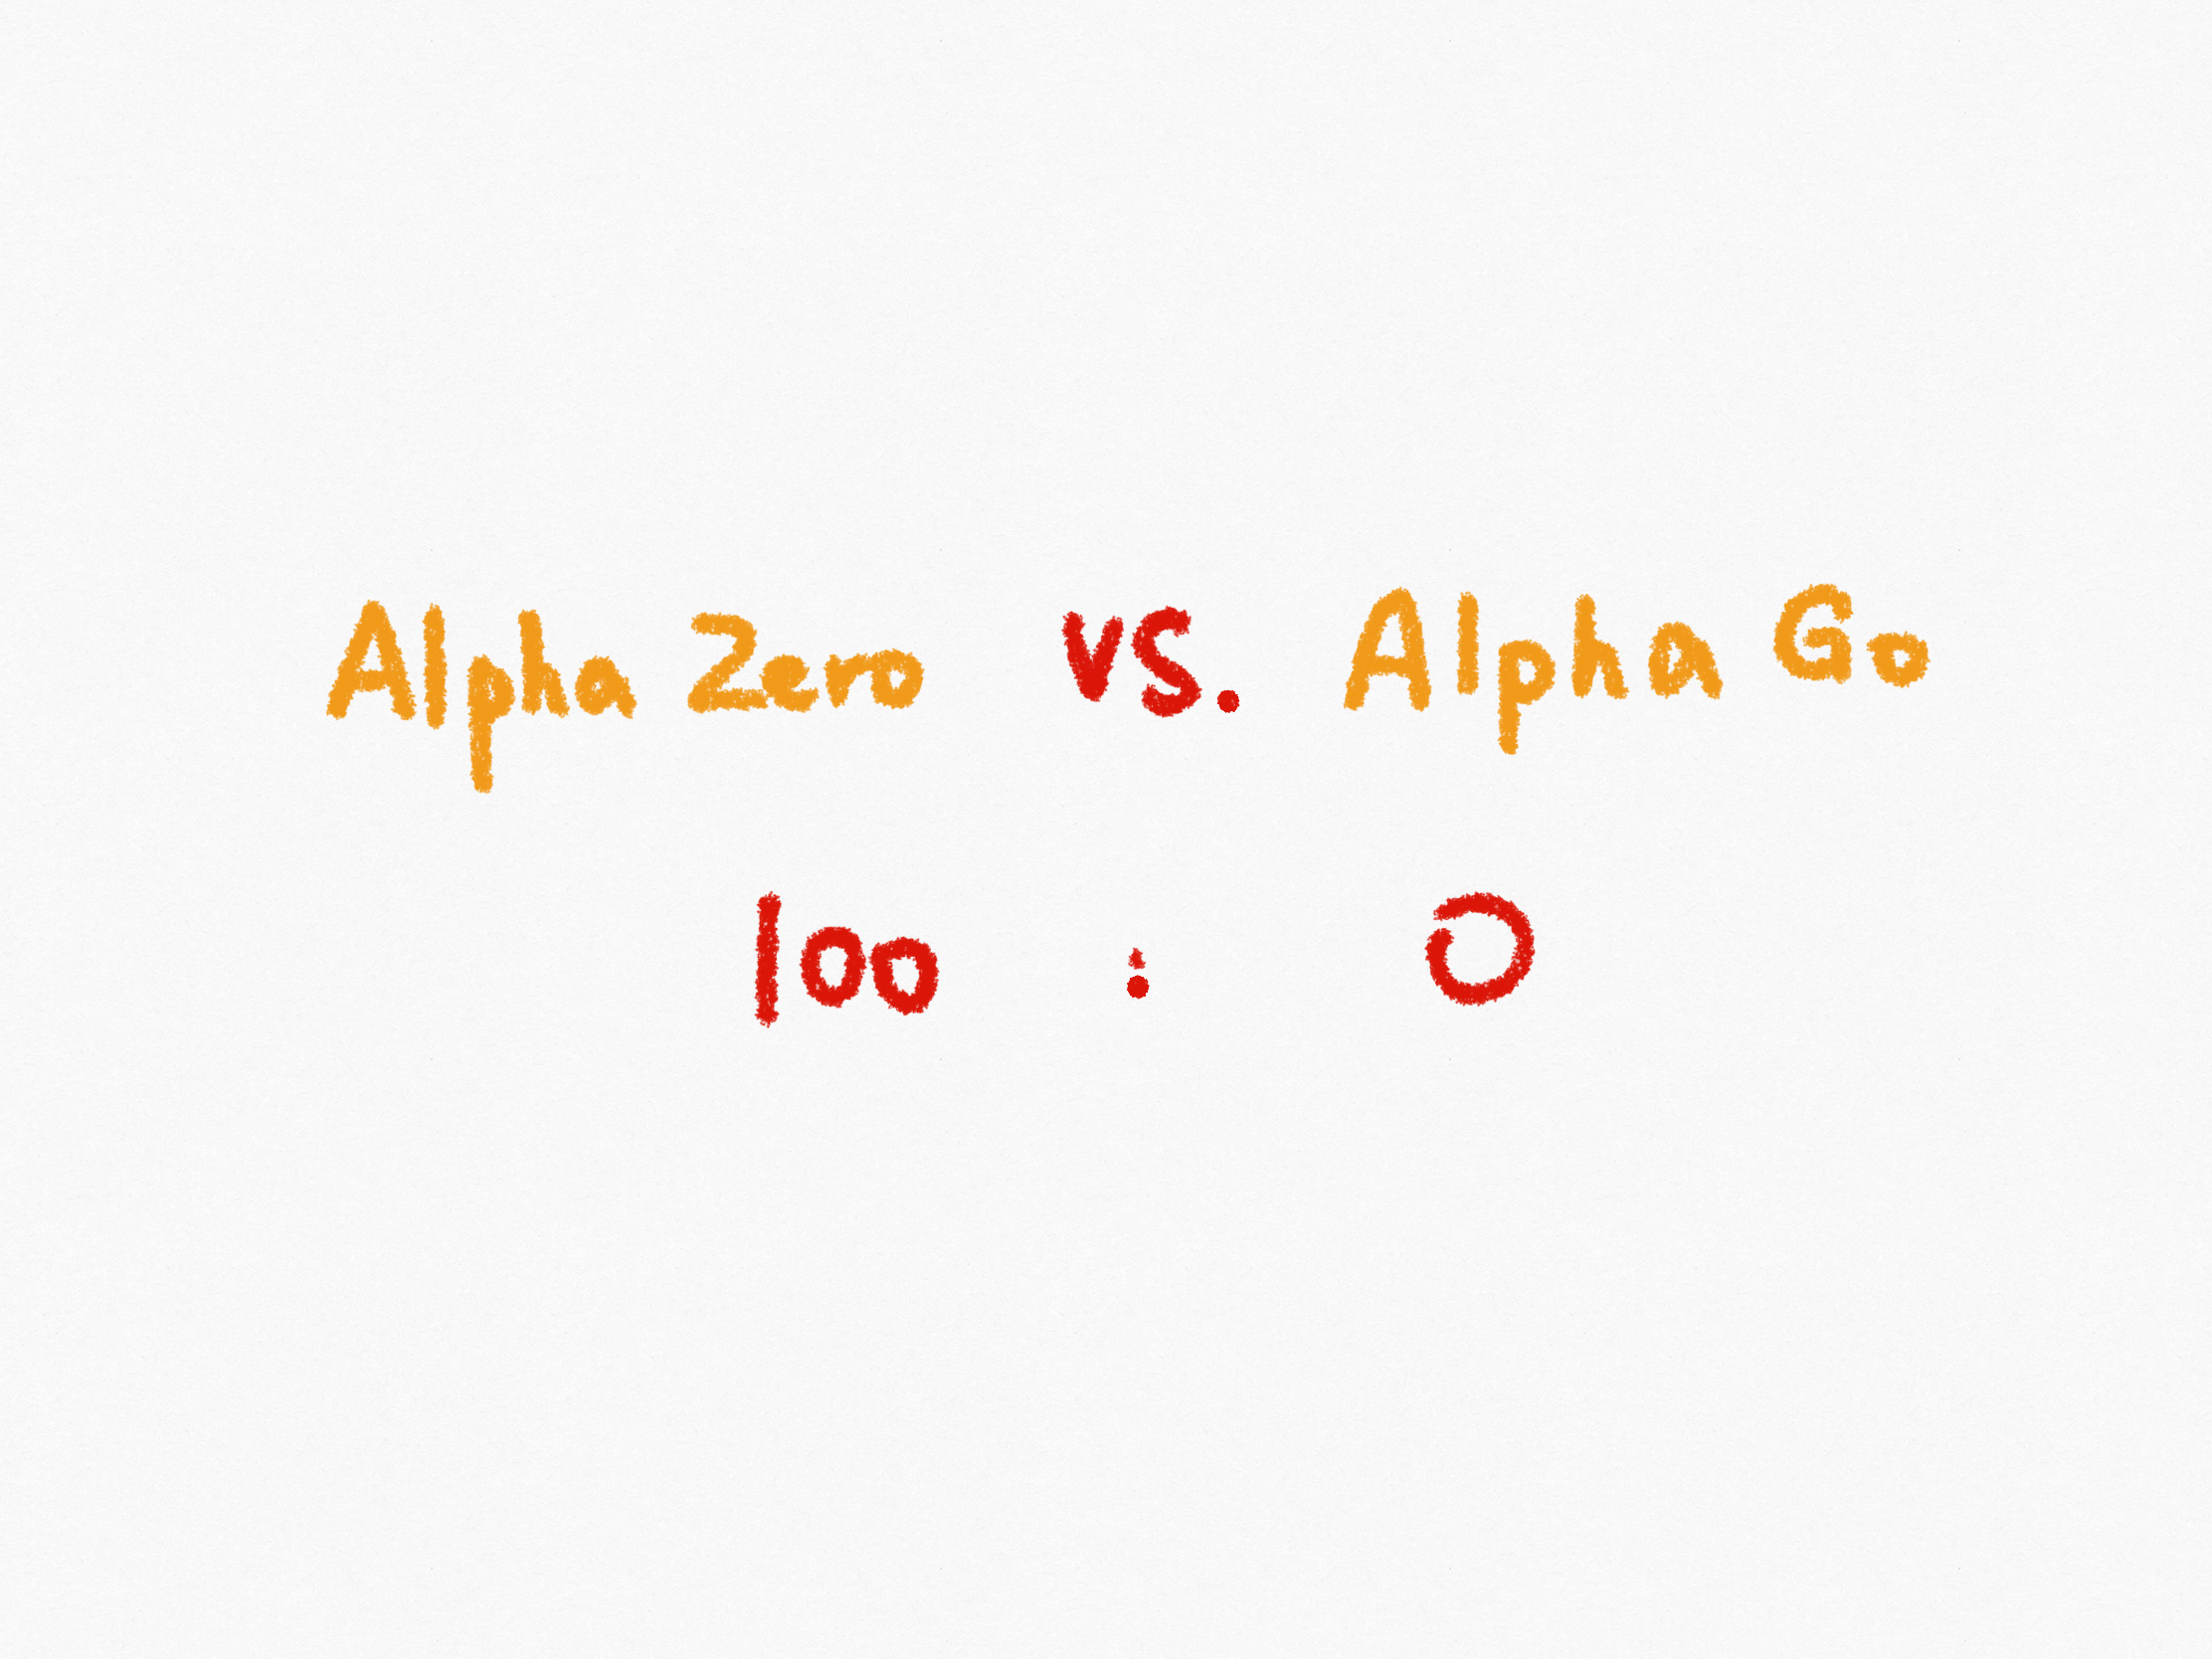 Alpha Zero vs. Alpha Go
100 : 0